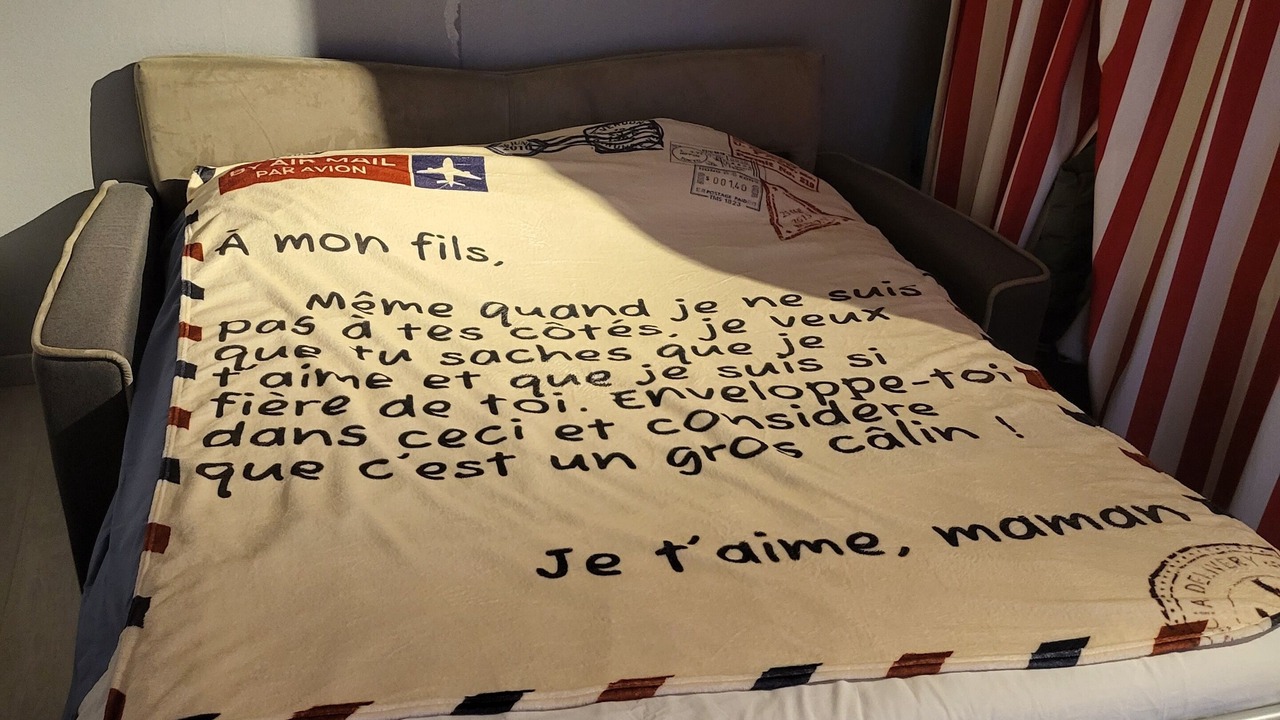 BY AIR MAIL
PAR AVION
$001.40
POSTAGE PAID
À mon fils,
Même quand je ne suis
pas à tes côtés, je veux
que tu saches que je
t'aime et que je suis si
fière de toi. Enveloppe-toi
dans ceci et considère
que c'est un gros câlin !
Je t'aime, maman
DELIVERY